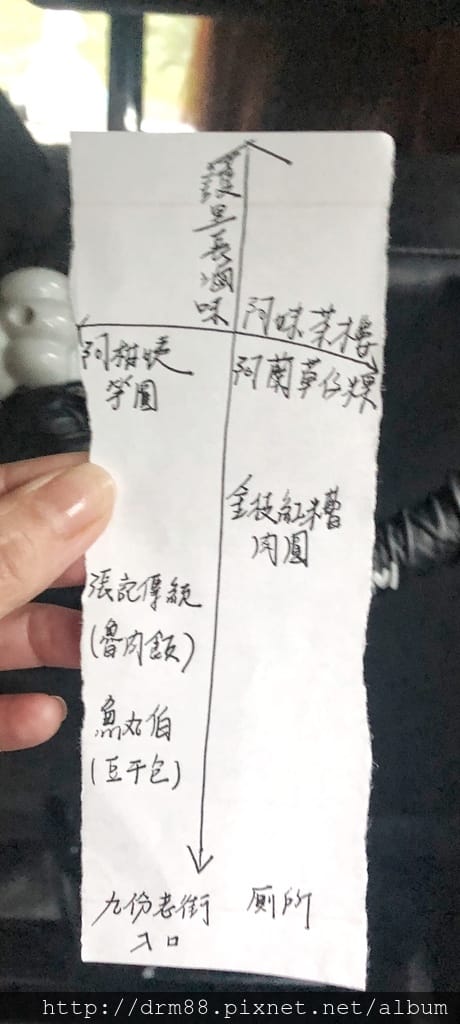 護里長滷味
阿妹茶樓
阿柑姨
芋圓
阿蘭草仔粿
金枝紅糟
肉圓
張記傳統
(魯肉飯)
魚丸伯
(豆干包)
九份老街
入口
廁所
http://drm88.pixnet.net/album